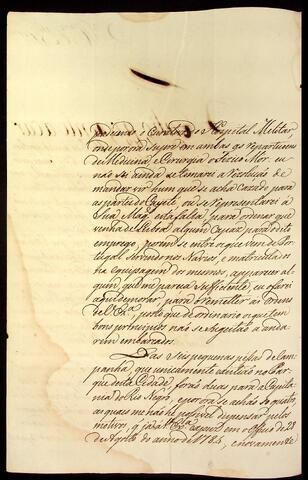 precurar o Curativo do Hospital Militar,
em supor as ambas as repartiçoens
de Medicina, e Cirurgia o Fizico Mor. eu
não sei ainda se tomarei a rezolução de
mandar vir hum que se acha cazado para
as partes do Cayeté, ou se representarei a
Sua Mag.e esta falta, para ordenar que
venha de Lisboa algum capaz para este
emprego, porem se entre os que vem de Por-
tugal servindo nos Navios, e matriculados
na equipagem dos mesmos, apparecer al-
guem, que me pareça sufficiente, eu o farei
aqui demorar, para o remetter as ordens
de V. Ex.a, posto que de ordinario os que tem
bons principios não se sugeitão a anda-
rem embarcados.
Das seis pequenas pessas de Cam-
panha, que unicamente existião no Par-
que desta Cidade, forão duas para a Capita-
nia do Rio Negro, e por ora se achão só quatro,
as quaes me não he possivel dispensar pelos
motivos, q já a V. Ex.a expuz em officio de 28
de Agosto do anno de 1784, e novamente